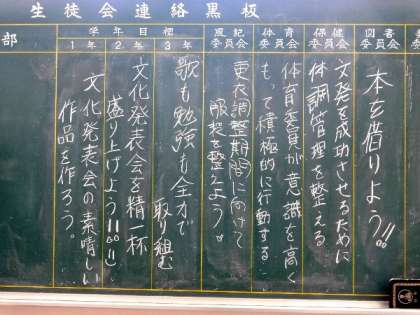 生徒会連絡黒板
図書
委員会
本を借りよう!!
保健
委員会
文発を成功させるために
体調管理を整える
体育
委員会
体育委員が意識を高く
もって積極的に行動する
風紀
委員会
更衣調整期間に向けて
服装を整えよう。
学年目標
3年
歌も勉強も全力で
取り組む
2年
文化発表会を精一杯
盛り上げよう!!
1年
文化発表会の素晴しい
作品を作ろう。
部